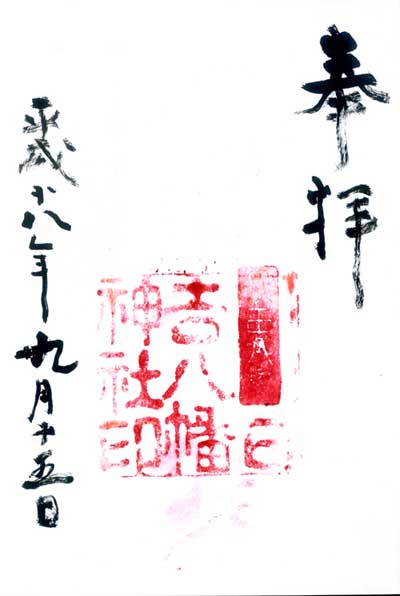 奉拝
吉八幡
神社印
平成十八年九月十五日